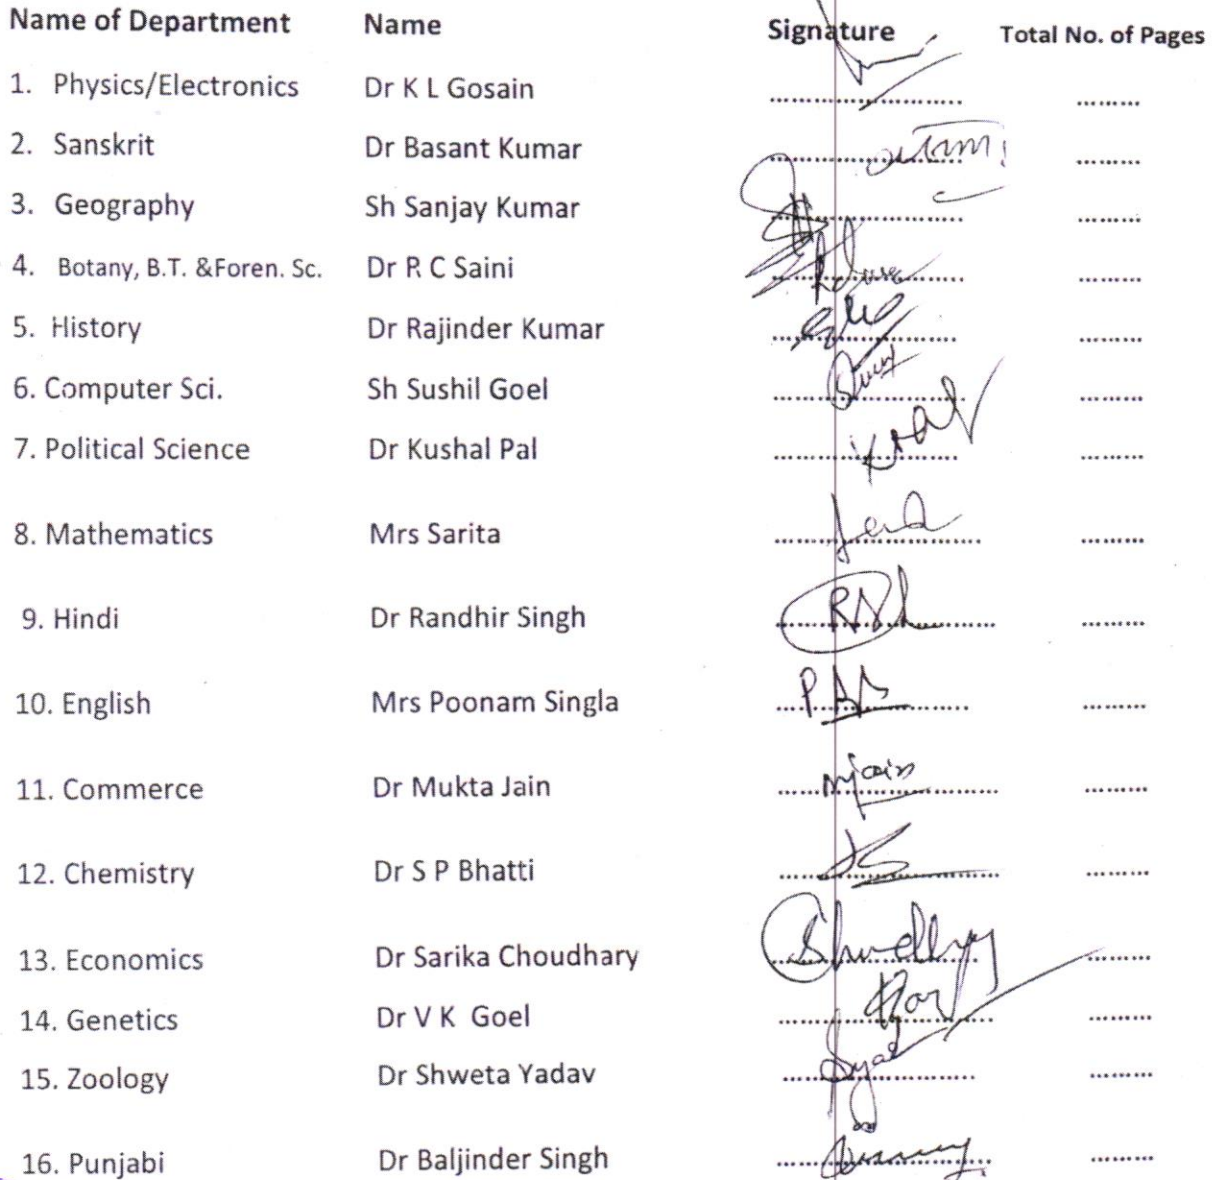 Name of Department Name Signature Total No. of Pages
1. Physics/Electronics Dr K L Gosain ........................ .........
2. Sanskrit Dr Basant Kumar ........................ .........
3. Geography Sh Sanjay Kumar ........................ .........
4. Botany, B.T. &Foren. Sc. Dr R C Saini ........................ .........
5. History Dr Rajinder Kumar ........................ .........
6. Computer Sci. Sh Sushil Goel ........................ .........
7. Political Science Dr Kushal Pal ........................ .........
8. Mathematics Mrs Sarita ........................ .........
9. Hindi Dr Randhir Singh ........................ .........
10. English Mrs Poonam Singla ........................ .........
11. Commerce Dr Mukta Jain mjain ........................ .........
12. Chemistry Dr S P Bhatti ........................ .........
13. Economics Dr Sarika Choudhary ........................ .........
14. Genetics Dr V K Goel ........................ .........
15. Zoology Dr Shweta Yadav ........................ .........
16. Punjabi Dr Baljinder Singh ........................ .........